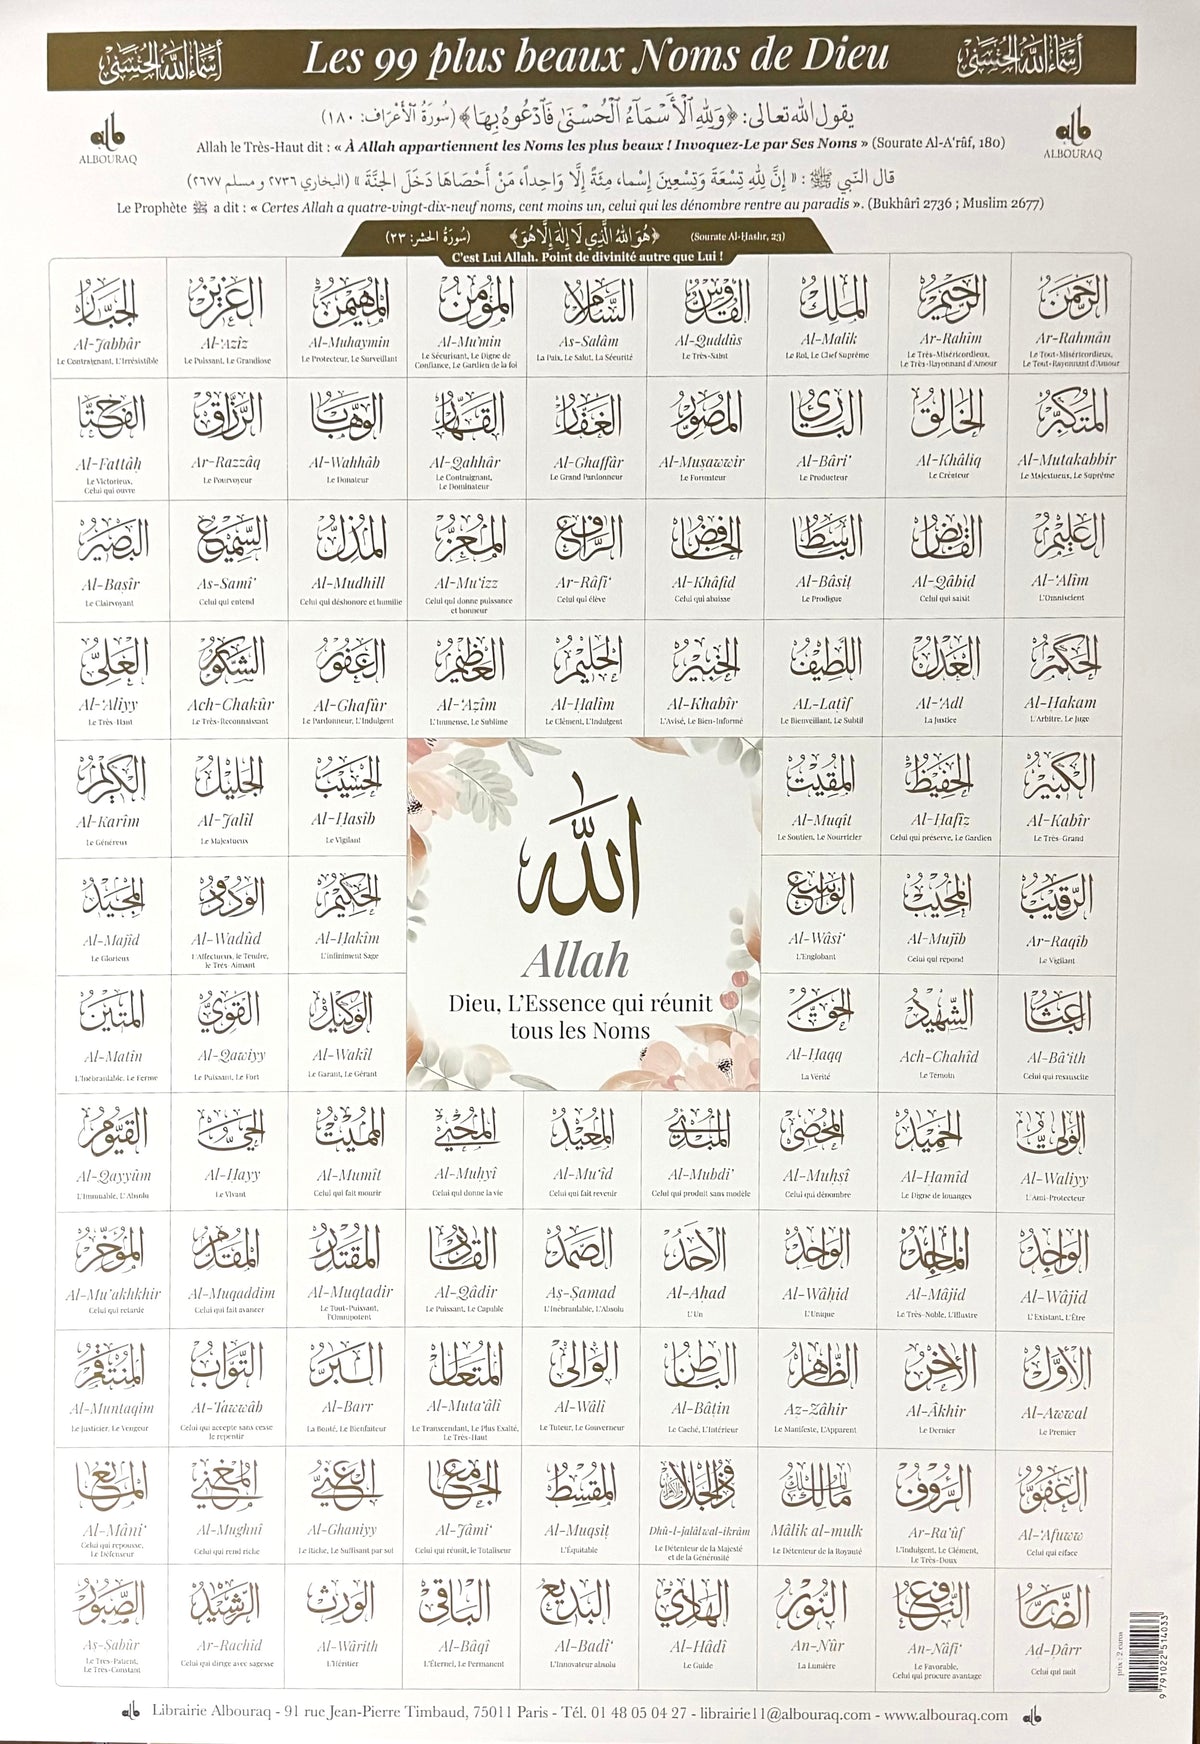 أسماء الله الحسنى
Les 99 plus beaux Noms de Dieu
أسماء الله الحسنى
يقول الله تعالى: ﴿وَلِلَّهِ ٱلْأَسْمَآءُ ٱلْحُسْنَىٰ فَٱدْعُوهُ بِهَا﴾ (سُورَةُ ٱلْأَعْرَافِ: ١٨٠)
alb
ALBOURAQ
alb
ALBOURAQ
Allah le Très-Haut dit : « À Allah appartiennent les Noms les plus beaux ! Invoquez-Le par Ses Noms » (Sourate Al-A‘râf, 180)
قال النَّبي ﷺ: « إِنَّ لِلَّهِ تِسْعَةً وَتِسْعِينَ إِسْما، مِئَةً إِلَّا وَاحِداً، مَنْ أَحْصَاهَا دَخَلَ الجَنَّةَ » (البخاري ٢٧٣٦ و مسلم ٢٦٧٧)
Le Prophète ﷺ a dit : « Certes Allah a quatre-vingt-dix-neuf noms, cent moins un, celui qui les dénombre rentre au paradis ». (Bukhârî 2736 ; Muslim 2677)
﴿هُوَ اللهُ الَّذِي لَا إِلَهَ إِلَّا هُوَ﴾ (سُورَةُ الحشر: ٢٣)
(Sourate Al-Ḥashr, 23)
C'est Lui Allah. Point de divinité autre que Lui !
الرَّحْمَنُ
Ar-Rahmân
Le Tout-Miséricordieux,
Le Tout-Rayonnant d'Amour
الرَّحِيمُ
Ar-Rahîm
Le Très-Miséricordieux,
Le Très-Rayonnant d'Amour
المَلِكُ
Al-Malik
Le Roi, Le Chef suprême
القُدُّوسُ
Al-Quddûs
Le Très-Saint
السَّلَامُ
As-Salâm
La Paix, Le Salut, La Sécurité
المُؤْمِنُ
Al-Mu'min
Le Sécurisant, Le Digne de
Confiance, Le Gardien de la foi
المُهَيْمِنُ
Al-Muhaymin
Le Protecteur, Le Surveillant
العَزِيزُ
Al-‘Azîz
Le Puissant, Le Grandiose
الجَبَّارُ
Al-Jabbâr
Le Contraignant, L'Irrésistible
المُتَكَبِّرُ
Al-Mutakabbir
Le Majestueux, Le Suprême
الخَالِقُ
Al-Khâliq
Le Créateur
البَارِئُ
Al-Bâri’
Le Producteur
المُصَوِّرُ
Al-Muṣawwir
Le Formateur
الغَفَّارُ
Al-Ghaffâr
Le Grand Pardonneur
القَهَّارُ
Al-Qahhâr
Le Contraignant,
Le Dominateur
الوَهَّابُ
Al-Wahhâb
Le Donateur
الرَّزَّاقُ
Ar-Razzâq
Le Pourvoyeur
الفَتَّاحُ
Al-Fattâḥ
Le Victorieux,
Celui qui ouvre
العَلِيمُ
Al-‘Alîm
L'Omniscient
القَابِضُ
Al-Qâbid
Celui qui saisit
البَاسِطُ
Al-Bâsiṭ
Le Prodigue
الخَافِضُ
Al-Khâfid
Celui qui abaisse
الرَّافِعُ
Ar-Râfi‘
Celui qui élève
المُعِزُّ
Al-Mu‘izz
Celui qui donne puissance
et honneur
المُذِلُّ
Al-Mudhill
Celui qui déshonore et humilie
السَّمِيعُ
As-Samî‘
Celui qui entend
البَصِيرُ
Al-Baṣîr
Le Clairvoyant
الحَكَمُ
Al-Hakam
L'Arbitre, Le Juge
العَدْلُ
Al-‘Adl
La Justice
اللَّطِيفُ
AL-Latîf
Le Bienveillant, Le Subtil
الخَبِيرُ
Al-Khabîr
L'Avisé, Le Bien-Informé
الحَلِيمُ
Al-Halîm
Le Clément, L'Indulgent
العَظِيمُ
Al-‘Azîm
L'Immense, Le Sublime
الغَفُورُ
Al-Ghafûr
Le Pardonneur, L'Indulgent
الشَّكُورُ
Ach-Chakûr
Le Très-Reconnaissant
العَلِيُّ
Al-‘Aliyy
Le Très-Haut
الكَبِيرُ
Al-Kabîr
Le Très-Grand
الحَفِيظُ
Al-Ḥafîz
Celui qui préserve, Le Gardien
المُقِيتُ
Al-Muqît
Le Soutien, Le Nourricier
الحَسِيبُ
Al-Ḥasîb
Le Vigilant
الجَلِيلُ
Al-Jalîl
Le Majestueux
الكَرِيمُ
Al-Karîm
Le Généreux
الله
Allah
Dieu, L'Essence qui réunit
tous les Noms
الرَّقِيبُ
Ar-Raqîb
Le Vigilant
المُجِيبُ
Al-Mujîb
Celui qui répond
الوَاسِعُ
Al-Wâsi‘
L'Englobant
الحَكِيمُ
Al-Ḥakîm
L'infiniment Sage
الوَدُودُ
Al-Wadûd
L'Affectueux, le Tendre,
le Très-Aimant
المَجِيدُ
Al-Majîd
Le Glorieux
البَاعِثُ
Al-Bâ‘ith
Celui qui ressuscite
الشَّهِيدُ
Ach-Chahîd
Le Témoin
الحَقُّ
Al-Ḥaqq
La Vérité
الوَكِيلُ
Al-Wakîl
Le Garant, Le Gérant
القَوِيُّ
Al-Qawiyy
Le Puissant, Le Fort
المَتِينُ
Al-Matîn
L'Inébranlable, Le Ferme
الوَلِيُّ
Al-Waliyy
L'Ami-Protecteur
الحَمِيدُ
Al-Hamîd
Le Digne de louanges
المُحْصِي
Al-Muḥsî
Celui qui dénombre
المُبْدِئُ
Al-Mubdi’
Celui qui produit sans modèle
المُعِيدُ
Al-Mu‘îd
Celui qui fait revenir
المُحْيِي
Al-Muḥyî
Celui qui donne la vie
المُمِيتُ
Al-Mumît
Celui qui fait mourir
الحَيُّ
Al-Ḥayy
Le Vivant
القَيُّومُ
Al-Qayyûm
L'Immuable, L'Absolu
الوَاجِدُ
Al-Wâjid
L'Existant, L'Être
المَاجِدُ
Al-Mâjid
Le Très-Noble, L'Illustre
الوَاحِدُ
Al-Wâhid
L'Unique
الأَحَدُ
Al-Aḥad
L'Un
الصَّمَدُ
Aṣ-Ṣamad
L'Inébranlable, L'Absolu
القَادِرُ
Al-Qâdir
Le Puissant, Le Capable
المُقْتَدِرُ
Al-Muqtadir
Le Tout-Puissant,
l'Omnipotent
المُقَدِّمُ
Al-Muqaddim
Celui qui fait avancer
المُؤَخِّرُ
Al-Mu’akhkhir
Celui qui retarde
الأَوَّلُ
Al-Awwal
Le Premier
الآخِرُ
Al-Âkhir
Le Dernier
الظَّاهِرُ
Az-Zâhir
Le Manifeste, L'Apparent
البَاطِنُ
Al-Bâṭin
Le Caché, L'Intérieur
الوَالِي
Al-Wâlî
Le Tuteur, Le Gouverneur
المُتَعَالُ
Al-Muta‘âlî
Le Transcendant, Le Plus Exalté,
Le Très-Haut
البَرُّ
Al-Barr
La Bonté, Le Bienfaiteur
التَّوَّابُ
At-Tawwâb
Celui qui accepte sans cesse
le repentir
المُنْتَقِمُ
Al-Muntaqim
Le Justicier, Le Vengeur
العَفُوُّ
Al-‘Afuww
Celui qui efface
الرَّؤُوفُ
Ar-Ra’ûf
L'Indulgent, Le Clément,
Le Très-Doux
مَالِكُ المُلْكِ
Mâlik al-mulk
Le Détenteur de la Royauté
ذُو الجَلَالِ وَالإِكْرَامِ
Dhû-l-jalâl wal-ikrâm
Le Détenteur de la Majesté
et de la Générosité
المُقْسِطُ
Al-Muqsiṭ
L'Équitable
الجَامِعُ
Al-Jâmi‘
Celui qui réunit, le Totaliseur
الغَنِيُّ
Al-Ghaniyy
Le Riche, Le Suffisant par soi
المُغْنِي
Al-Mughnî
Celui qui rend riche
المَانِعُ
Al-Mâni‘
Celui qui repousse,
Le Défenseur
الضَّارُّ
Aḍ-Ḍârr
Celui qui nuit
النَّافِعُ
An-Nâfi‘
Le Favorable,
Celui qui procure avantage
النُّورُ
An-Nûr
La Lumière
الهَادِي
Al-Hâdî
Le Guide
البَدِيعُ
Al-Badî‘
L'Innovateur absolu
البَاقِي
Al-Bâqî
L'Éternel, Le Permanent
الوَارِثُ
Al-Wârith
L'Héritier
الرَّشِيدُ
Ar-Rachîd
Celui qui dirige avec sagesse
الصَّبُورُ
Aṣ-Ṣabûr
Le Très-Patient,
Le Très-Constant
prix : 2 euros
9 791022 514033
alb Librairie Albouraq - 91 rue Jean-Pierre Timbaud, 75011 Paris - Tél. 01 48 05 04 27 - librairie11@albouraq.com - www.albouraq.com alb